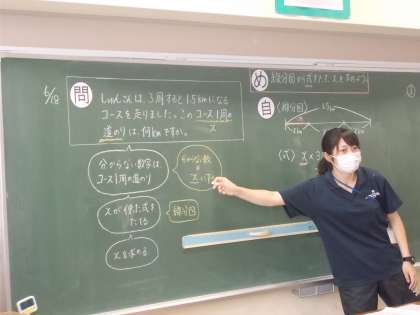 6/18
問
しゅんさんは、3周すると1.5kmになる
コースを走りました。このコース1周の
道のりは、何kmですか。
x
分からない数字は
コース1周の道のり
分からない数
xが使た式を
たてる
線分図
xを求める
め
線分図から式をたて、xを求めよう
自
(線分図)
1.5km
x
(式) x×3